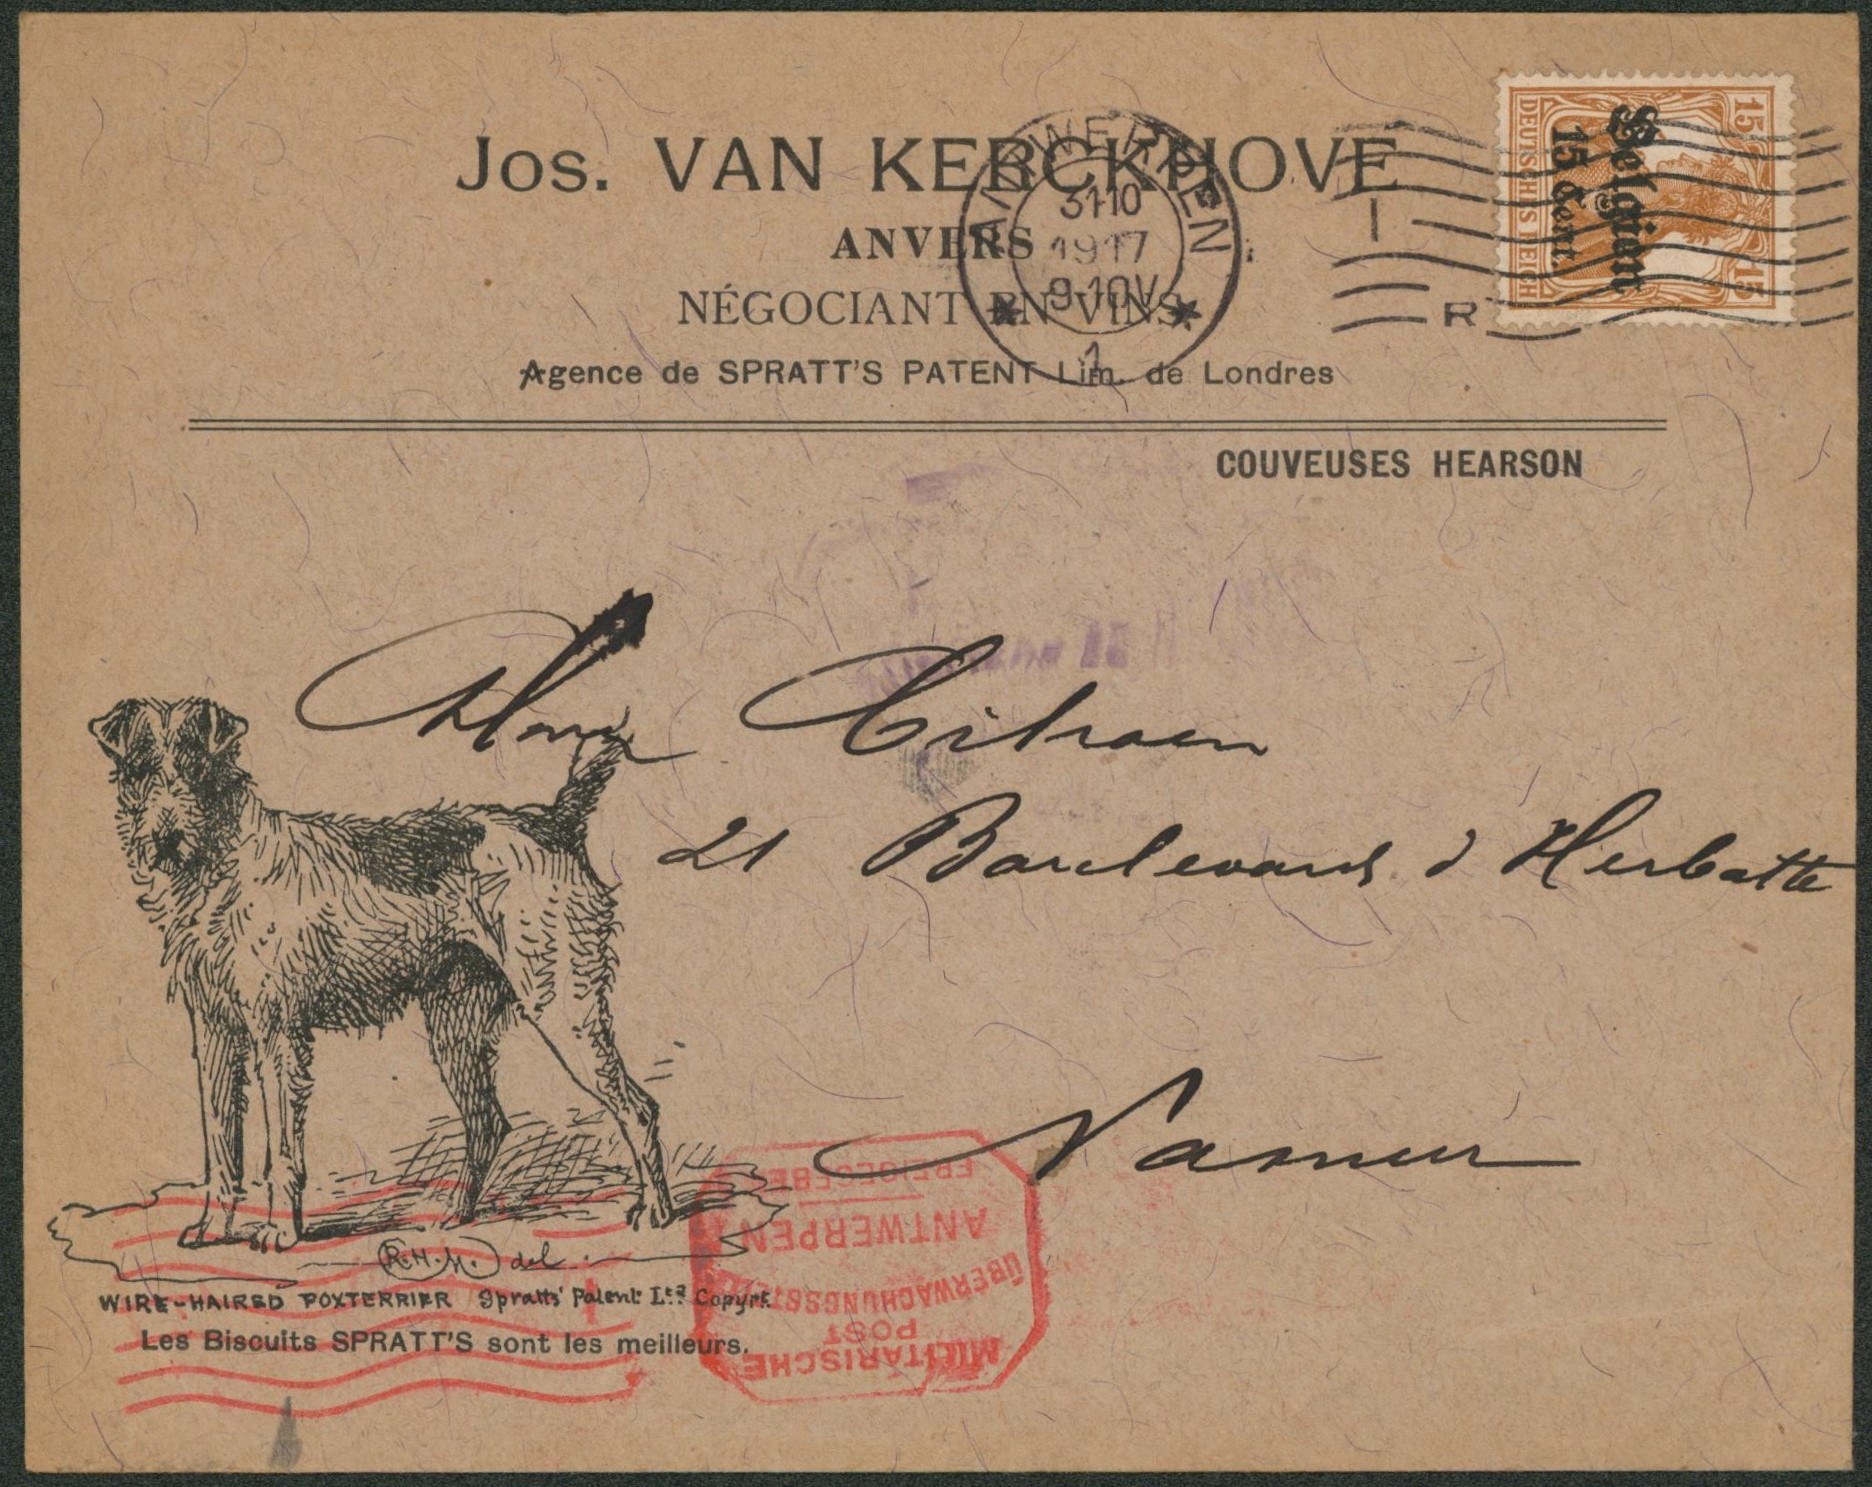 Jos. VAN KERCKHOVE
ANVERS
NÉGOCIANT EN VINS
Agence de SPRATT'S PATENT Lim. de Londres
COUVEUSES HEARSON
ANTWERPEN
31 10
1917
9-10V
1
R
15 15
DEUTSCHES REICH
Belgien
15 Cent.
Citroen
21 Boulevard d'Herbatte
Namur
R.H.M. del
WIRE-HAIRED FOXTERRIER Spratts' Patent Ltd Copyrt.
Les Biscuits SPRATT'S sont les meilleurs.
MILITÄRISCHE
POST
ÜBERWACHUNGSSTELLE
ANTWERPEN
FREIGEGEBEN